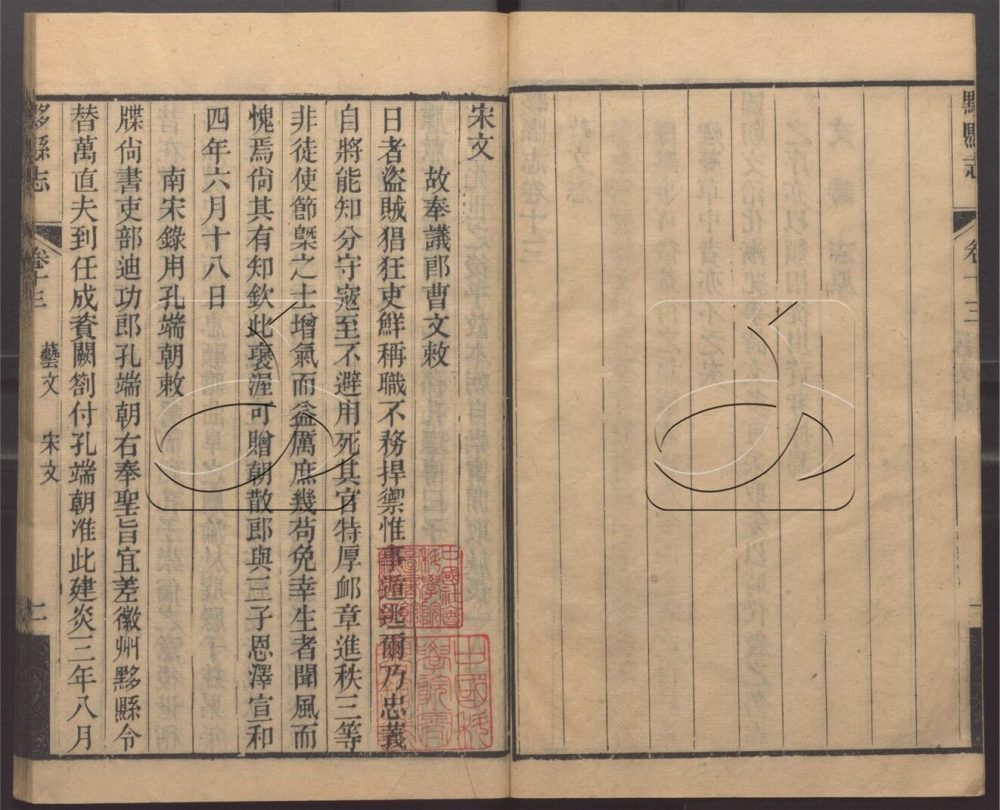 黟縣志
卷十三
一
宋文
故奉議郎曹文敕
日者盜賊猖狂吏鮮稱職不務捍禦惟事遁逃爾乃忠義
自將能知分守寇至不避用死其官特厚卹章進秩三等
非徒使節槩之士增氣而益厲庶幾苟免幸生者聞風而
愧焉尙其有知欽此褒渥可贈朝散郎與三子恩澤宣和
四年六月十八日
南宋錄用孔端朝敕
牒尙書吏部迪功郎孔端朝右奉聖旨宜差徽州黟縣令
替萬直夫到任成資闕劄付孔端朝准此建炎三年八月
黟縣志
卷十三
藝文
宋文